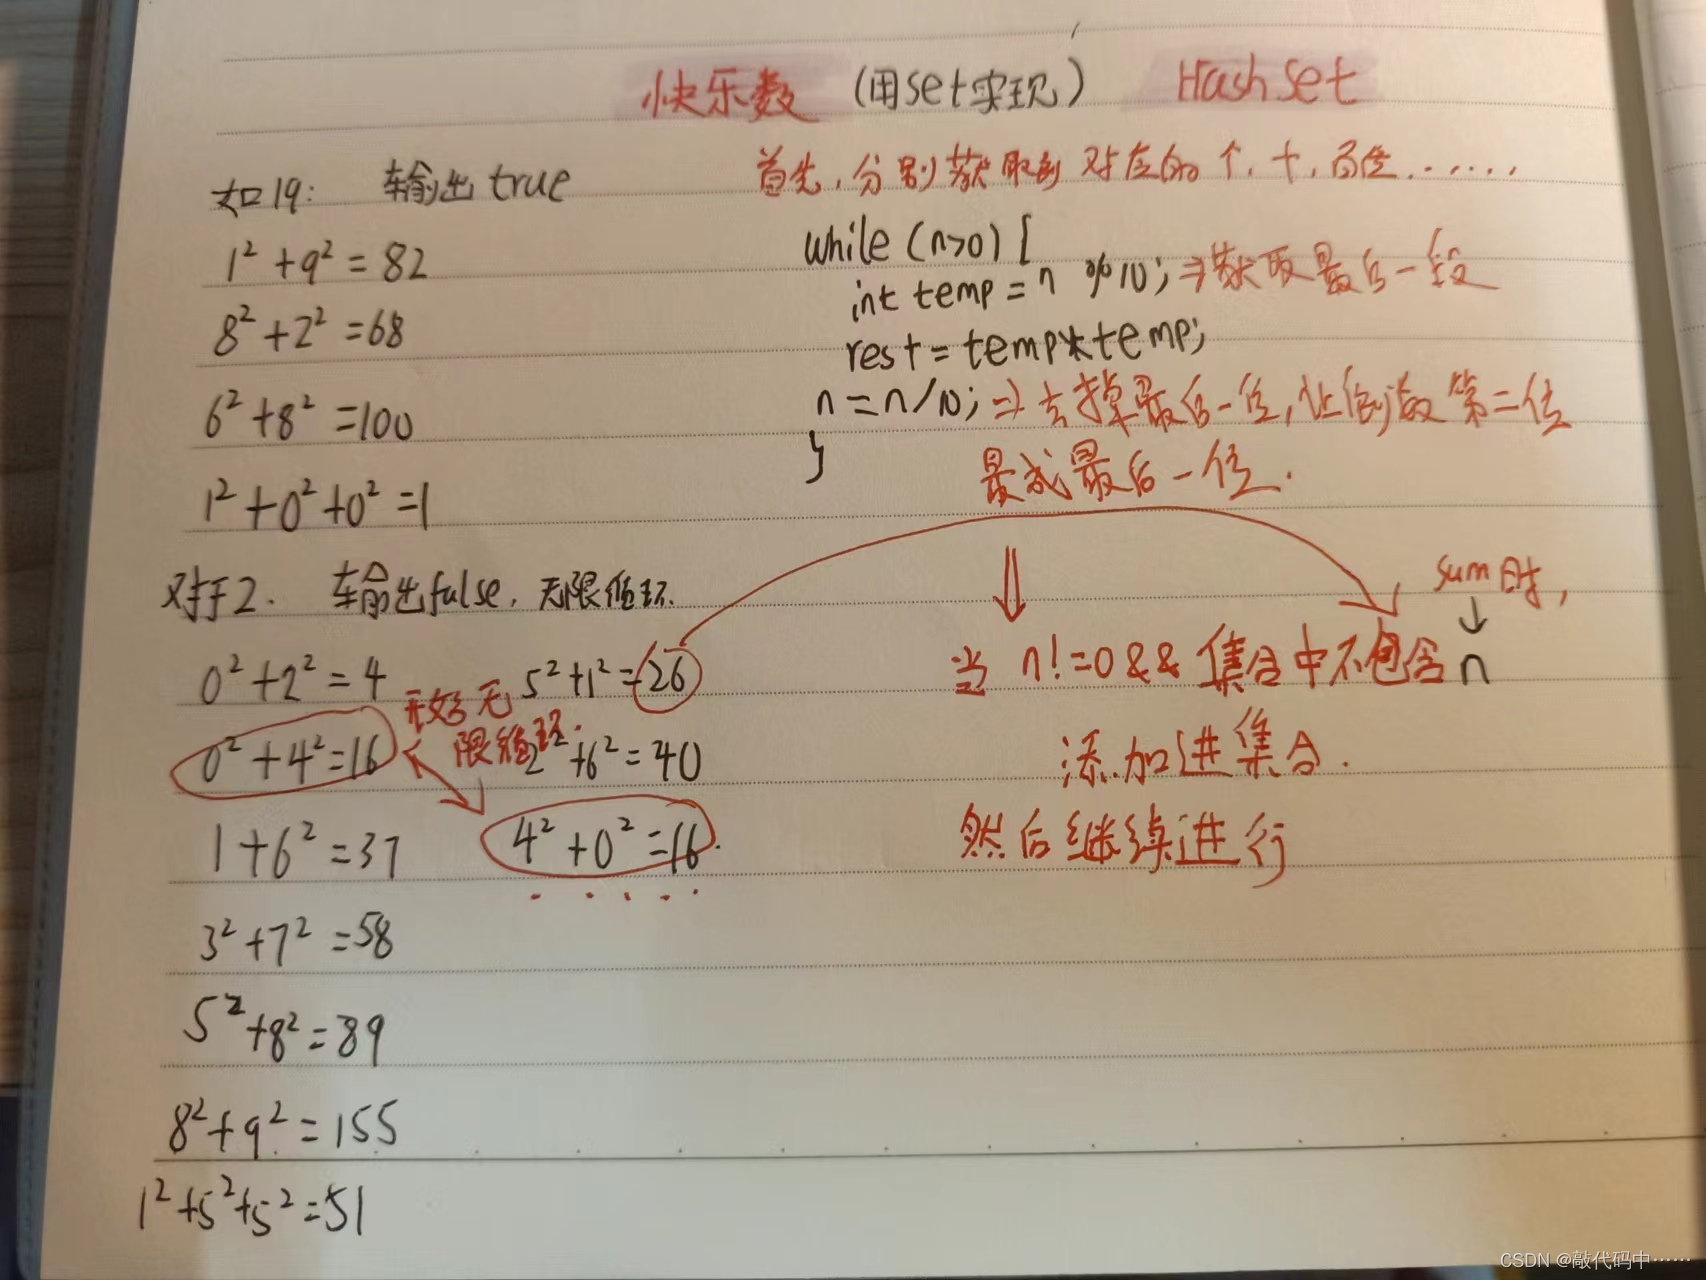 快乐数 (用set实现) Hash Set
如19: 输出true
1²+9²=82
8²+2²=68
6²+8²=100
1²+0²+0²=1
对于2. 输出false, 无限循环.
0²+2²=4
0²+4²=16
1+6²=37
3²+7²=58
5²+8²=89
8²+9²=155
1²+5²+5²=51
5²+1²=26
2²+6²=40
4²+0²=16.
.....
无
限循环.
首先, 分别获取到对应的个, 十, 百位......
while (n>0) {
int temp = n %10; ⇒获取最后一段
res+=temp*temp;
n=n/10; ⇒去掉最后一位, 让倒数第二位
}
成最后一位.
sum时,
当 n!=0&&集合中不包含n
添加进集合.
然后继续进行
CSDN @敲代码中……